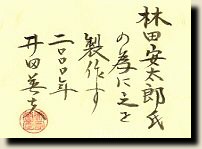 林田安太郎氏
の為に之を
製作す
二〇〇〇年
井田英夫